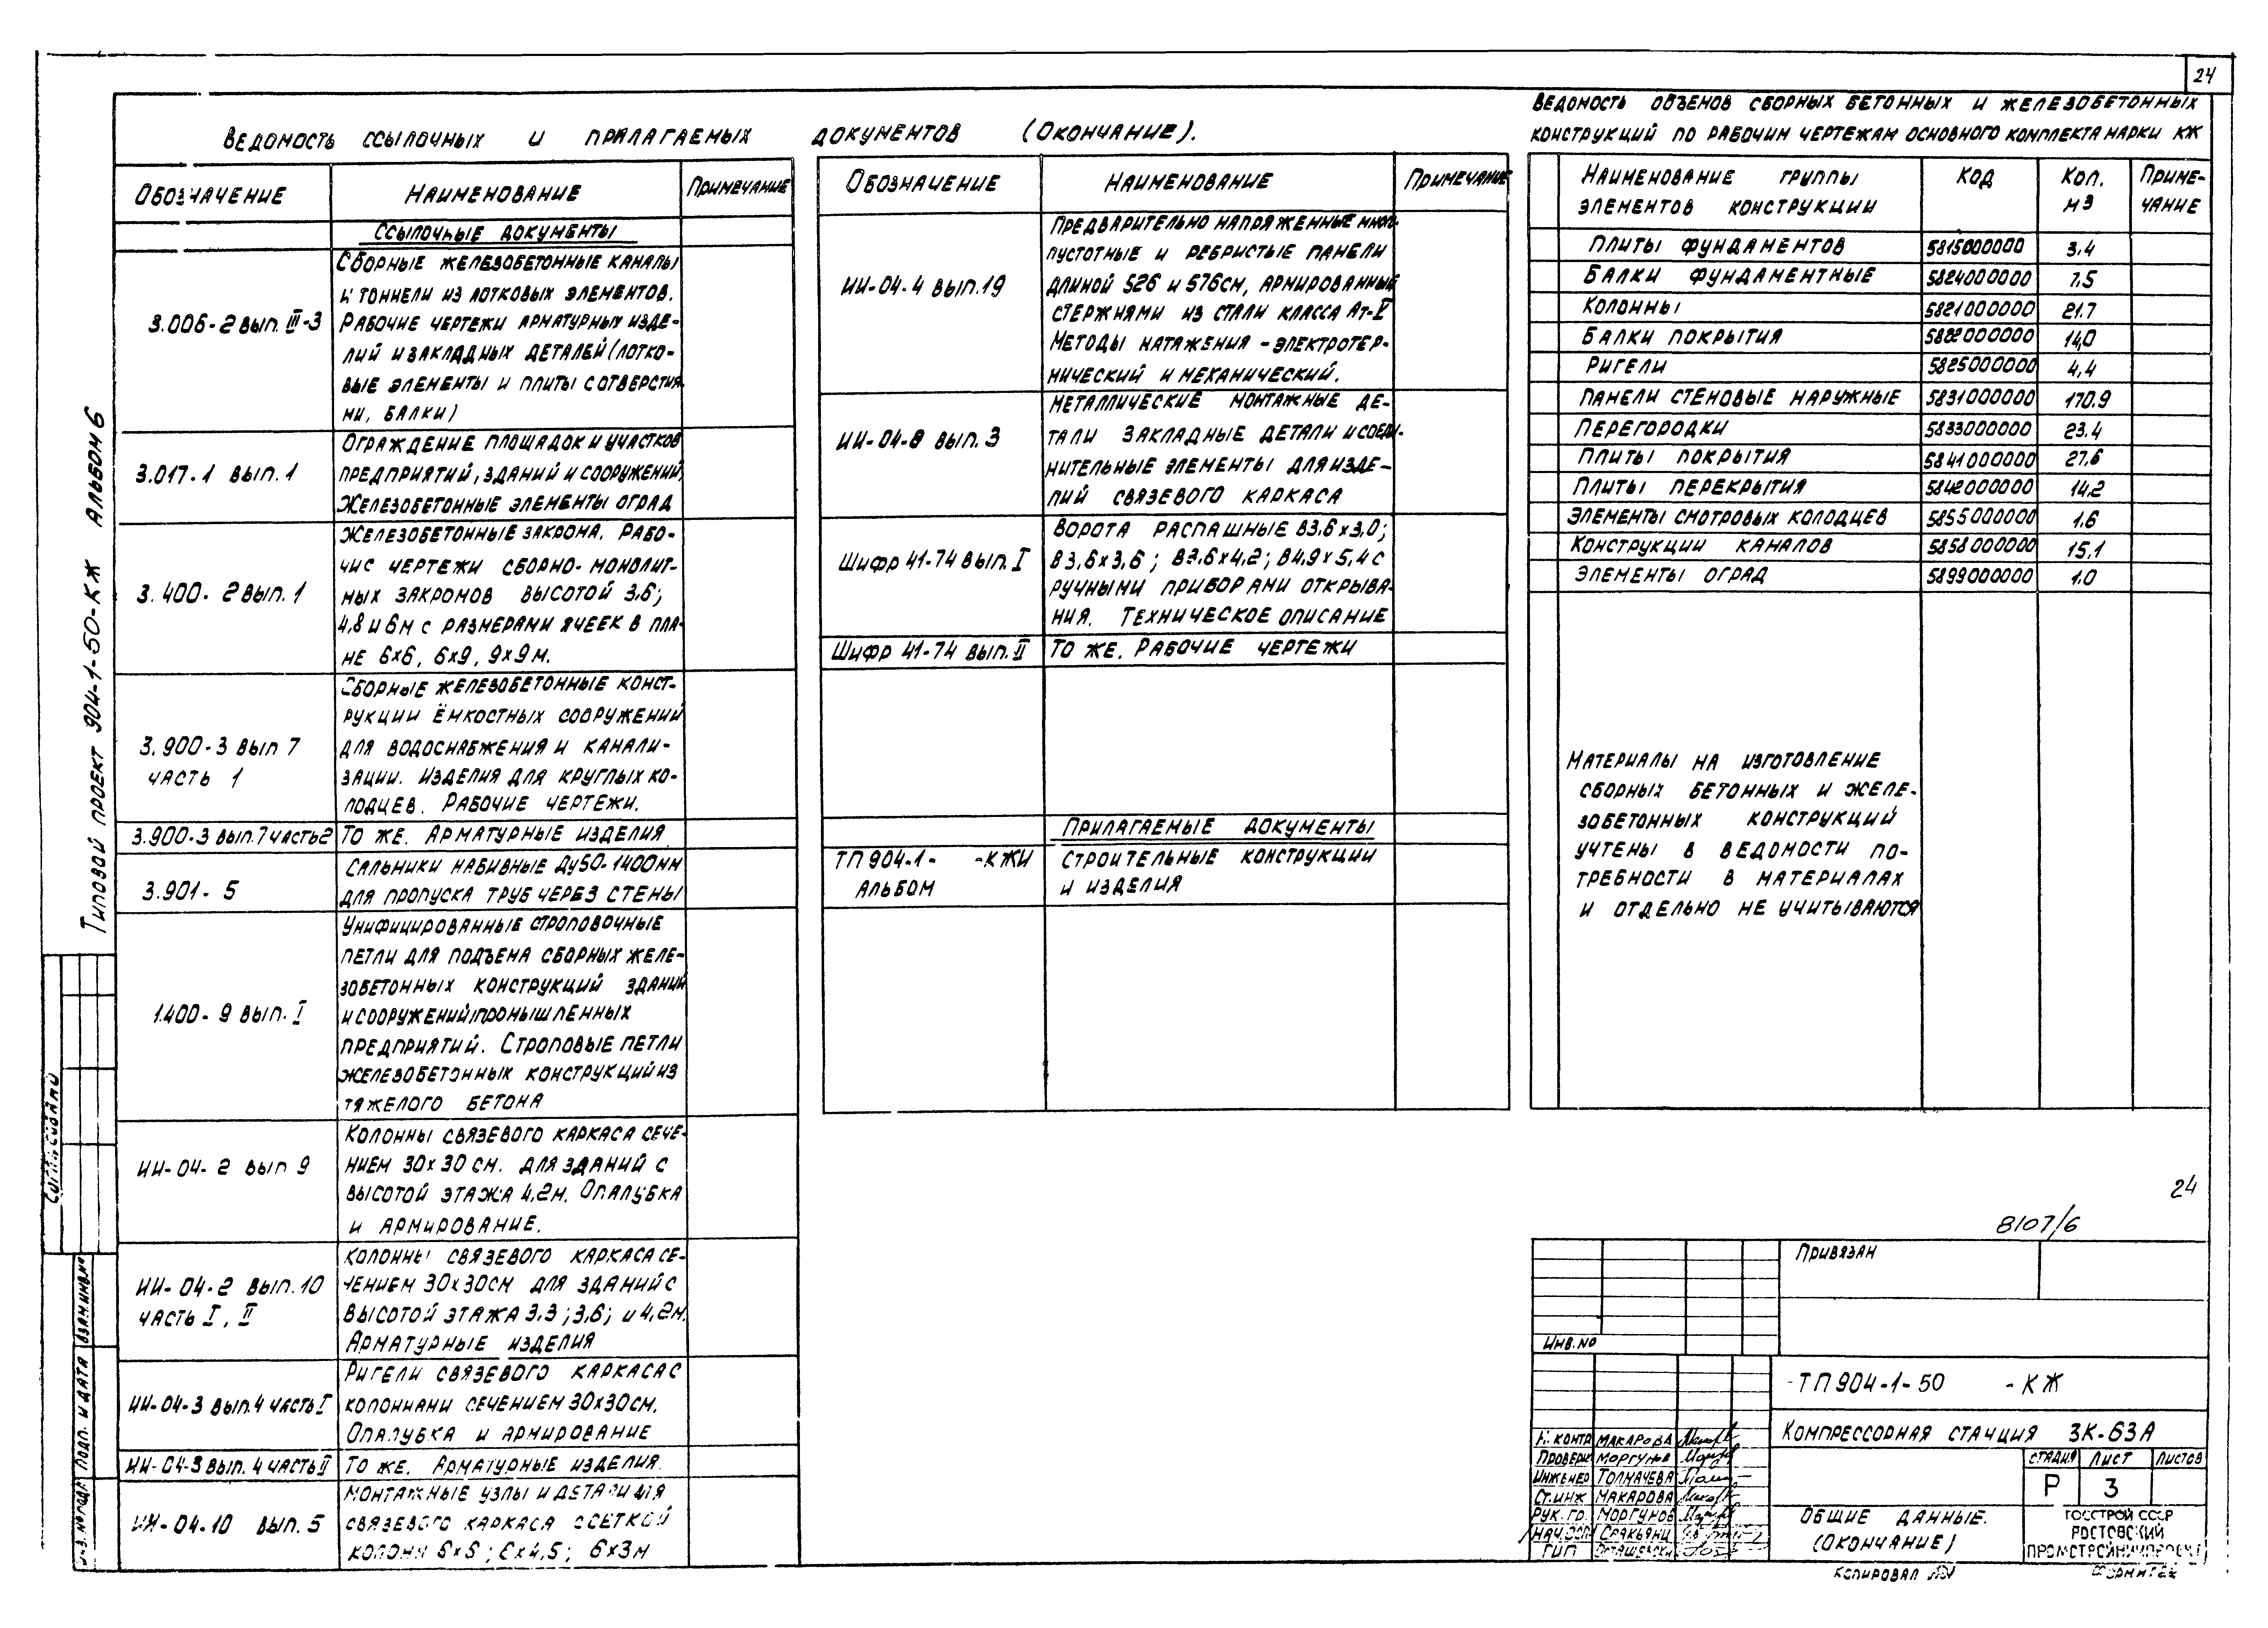 24
Ведомость ссылочных и прилагаемых документов (Окончание).
Обозначение Наименование Примечание
Ссылочные документы
3.006-2 вып. III-3
Сборные железобетонные каналы
и тоннели из лотковых элементов.
Рабочие чертежи арматурных изде-
лий и закладных деталей (лотко-
вые элементы и плиты с отверстия
ми, балки)
3.017-1 вып. 1
Ограждение площадок и участков
предприятий, зданий и сооружений,
Железобетонные элементы оград
3.400-2 вып. 1
Железобетонные закрома. Рабо-
чис чертежи сборно-монолит-
ных закромов высотой 3,6;
4,8 и 6м с размерами ячеек в пла-
не 6х6, 6х9, 9х9м.
3.900-3 вып 7
часть 1
Сборные железобетонные конст-
рукции ёмкостных сооружений
для водоснабжения и канали-
зации. Изделия для круглых ко-
лодцев. Рабочие чертежи.
3.900-3 вып. 7 часть 2 То же. Арматурные изделия
3.901-5
Сальники набивные Ду50-1400мм
для пропуска труб через стены
1.400-9 вып. I
Унифицированные строповочные
петли для подъема сборных желе-
зобетонных конструкций зданий
и сооружений промышленных
предприятий. Строповые петли
железобетонных конструкций из
тяжелого бетона
ИИ-04-2 вып 9
Колонны связевого каркаса сече-
нием 30х30 см. для зданий с
высотой этажа 4,2м. Опалубка
и армирование.
ИИ-04-2 вып. 10
часть I, II
Колонны связевого каркаса се-
чением 30х30см для зданий с
высотой этажа 3.3; 3,6; и 4,2м.
Арматурные изделия
ИИ-04-3 вып. 4 часть I
Ригели связевого каркаса с
колоннами сечением 30х30см.
Опалубка и армирование
ИИ-04-3 вып. 4 часть II То же. Арматурные изделия.
ИИ-04.10 вып. 5
Монтажные узлы и детали для
связевого каркаса с сеткой
колонн 6х6; 6х4,5; 6х3м
Обозначение Наименование Примечание
ИИ-04-4 вып. 19
Предварительно напряженные мног
пустотные и ребристые панели
длиной 526 и 576см, армированный
стержнями из стали класса Ат-V
Методы натяжения - электротер-
мический и механический.
ИИ-04-8 вып. 3
Металлические монтажные де-
тали закладные детали и соеди-
нительные элементы для изде-
лий связевого каркаса
Шифр 41-74 вып. I
Ворота распашные В3,6х3,0;
В3,6х3,6; В3,6х4,2; В4,9х5,4 с
ручными приборами открыва-
ния. Техническое описание
Шифр 41-74 вып. II То же. Рабочие чертежи
Прилагаемые документы
ТП 904-1- -КЖИ
Альбом
Строительные конструкции
и изделия
Ведомость объемов сборных бетонных и железобетонных
конструкций по рабочим чертежам основного комплекта марки КЖ
Наименование группы элементов конструкции Код Кол. м3 Приме-чание
Плиты фундаментов 5815000000 3.4
Балки фундаментные 5824000000 7.5
Колонны 5821000000 21.7
Балки покрытия 5822000000 14,0
Ригели 5825000000 4,4
Панели стеновые наружные 5831000000 170.9
Перегородки 5833000000 23.4
Плиты покрытия 5841000000 27.6
Плиты перекрытия 5842000000 14.2
Элементы смотровых колодцев 5855000000 1.6
Конструкции каналов 5858000000 15.1
Элементы оград 5899000000 1.0
Материалы на изготовление
сборных бетонных и желе-
зобетонных конструкций
учтены в ведомости по-
требности в материалах
и отдельно не учитываются
24
8107/6
Привязан
Инв. №
ТП 904-1-50 -КЖ
Компрессорная станция 3К-63А
Стадия Лист Листов
Р 3
Общие данные.
(Окончание)
Госстрой СССР
Ростовский
Промстройниипроект
Н. контр Макарова
Провери Моргунов
Инженер Толмачева
Ст. инж Макарова
Рук. гр. Моргунов
Нач. отд
ГИП
Копировал
Типовой проект 904-1-50-КЖ Альбом 6
Согласовано
Взам. инв. №
Подп. и дата